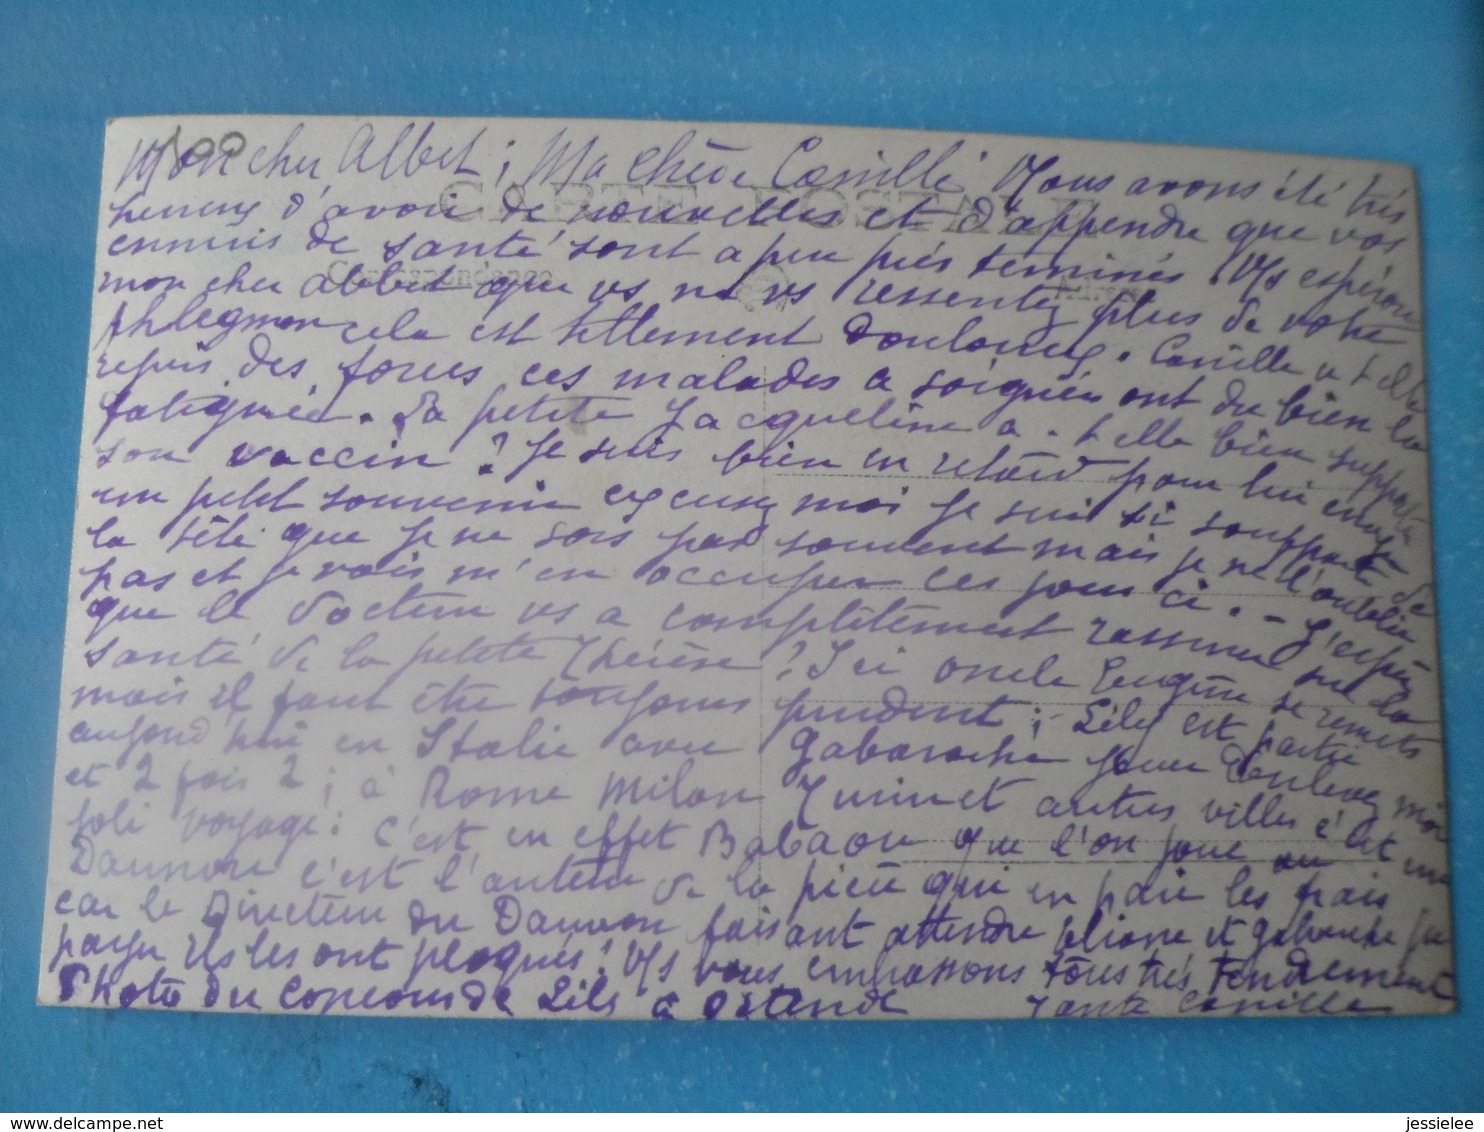 Mon cher Albert ; Ma chère Camille Nous avons été très
heureux d'avoir de nouvelles et d'apprendre que vos
ennuis de santé sont a peu près terminés. Ns espérons
mon cher Albert que vs ne vs ressentez plus de votre
phlegmon cela est tellement douloureux. Camille a t elle
repris des forces ces malades a soigner ont du bien la
fatiguée. La petite Jacqueline a-t elle bien supporté
son vaccin ? Je suis bien en retard pour lui envoyer
un petit souvenir excusez moi je suis si souffrante de
la tête que je ne sors pas souvent mais je ne l'oublie
pas et je vais m'en occuper ces jours ci. - J'espère
que le Docteur vs a complètement rassurée sur la
santé de la petite Thérèse ? Ici oncle Eugène se remets
mais il faut être toujours prudent ; - Lily est partie
aujourd'hui en Italie avec Gabaroche jouer Enlevez moi
et 2 fois 2 ; à Rome Milan Turin et autres villes c'est un
joli voyage : c'est en effet Babaou que l'on joue au
Daunou c'est l'auteur de la pièce qui en paie les frais
car le Directeur du Daunou faisant attendre et Gabaroche
payer ils les ont plaqués ! Ns vous embrassons tous très tendrement
Photo du Concours de Lily à Ostende Tante Camille
CARTE POSTALE
Correspondance
jessielee